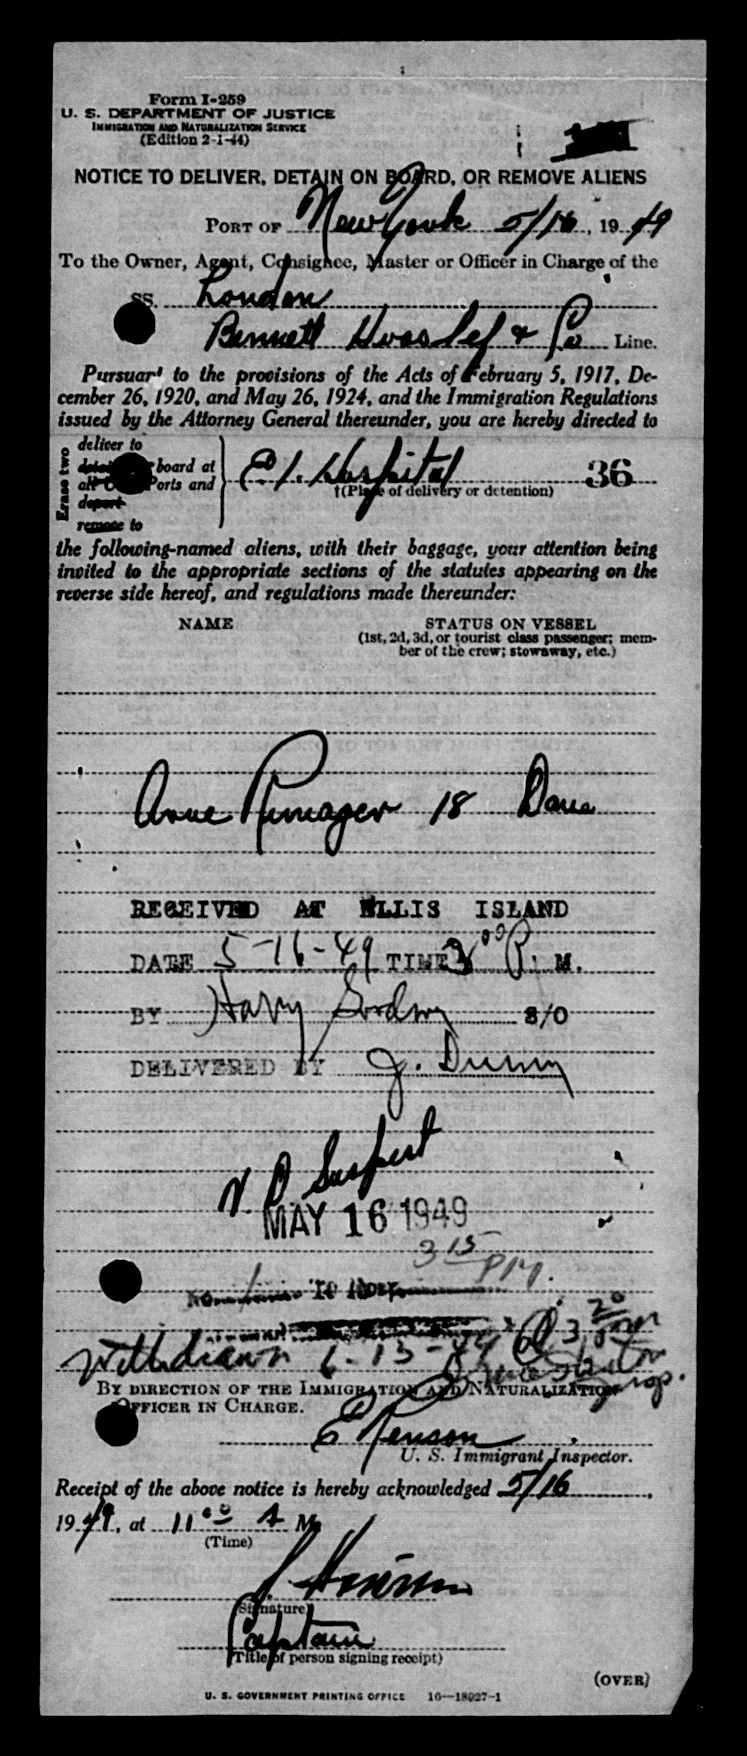 Form I-259
U. S. DEPARTMENT OF JUSTICE
IMMIGRATION AND NATURALIZATION SERVICE
(Edition 2-1-44)
NOTICE TO DELIVER, DETAIN ON BOARD, OR REMOVE ALIENS
PORT OF New York 5/16, 1949
To the Owner, Agent, Consignee, Master or Officer in Charge of the
SS. London
Bennett & Co Line.
Pursuant to the provisions of the Acts of February 5, 1917, De-
cember 26, 1920, and May 26, 1924, and the Immigration Regulations
issued by the Attorney General thereunder, you are hereby directed to
Erase two
deliver to
board at
Ports and
deport
remove to
E. I. Hospital 36
†(Place of delivery or detention)
the following-named aliens, with their baggage, your attention being
invited to the appropriate sections of the statutes appearing on the
reverse side hereof, and regulations made thereunder:
NAME STATUS ON VESSEL
(1st, 2d, 3d, or tourist class passenger; mem-
ber of the crew; stowaway, etc.)
18 Dane
RECEIVED AT ELLIS ISLAND
DATE 5-16-49 TIME 3 00 P. M.
BY Harry S/O
DELIVERED BY J.
V. D Suspect
MAY 16 1949
3 15 PM.
Withdrawn 6-13-49
BY DIRECTION OF THE IMMIGRATION AND NATURALIZATION
OFFICER IN CHARGE.
U. S. Immigrant Inspector.
Receipt of the above notice is hereby acknowledged 5/16,
1949, at 11 00 A M.
(Time)
(Signature)
Captain
(Title of person signing receipt)
(OVER)
U. S. GOVERNMENT PRINTING OFFICE 16—18027-1